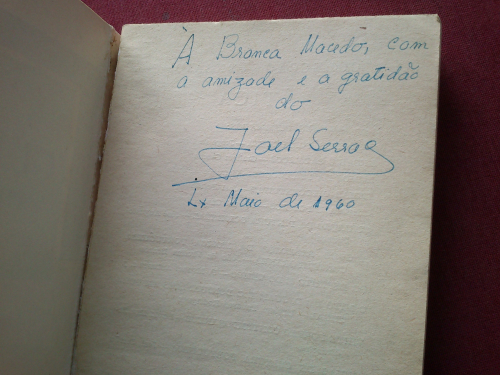 À Branca Macedo, com
a amizade e a gratidão
do
Joel Serrão
Lx Maio de 1960